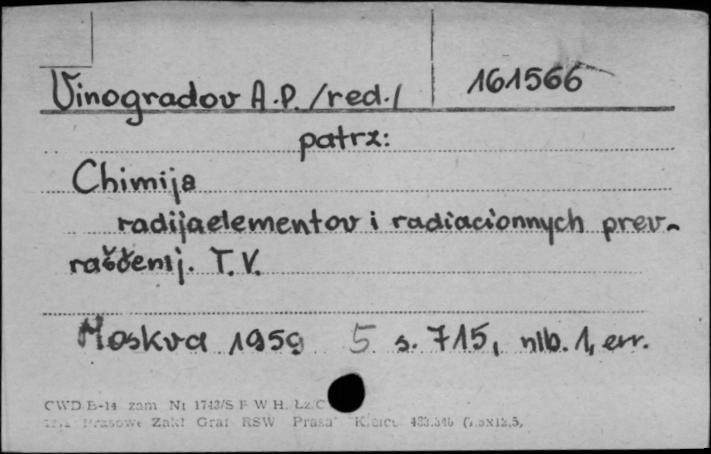 Vinogradov A.P. /red./ 161566
patrz:
Chimija
radijaelementov i radiacionnych prev-
raščenij. T.V.
Moskva 1959 5 s. 715, nlb. 1, err.
CWD B-14 zam Nr 1743/S F W H.
Prasowe Zakł Graf RSW Prasa Kielce